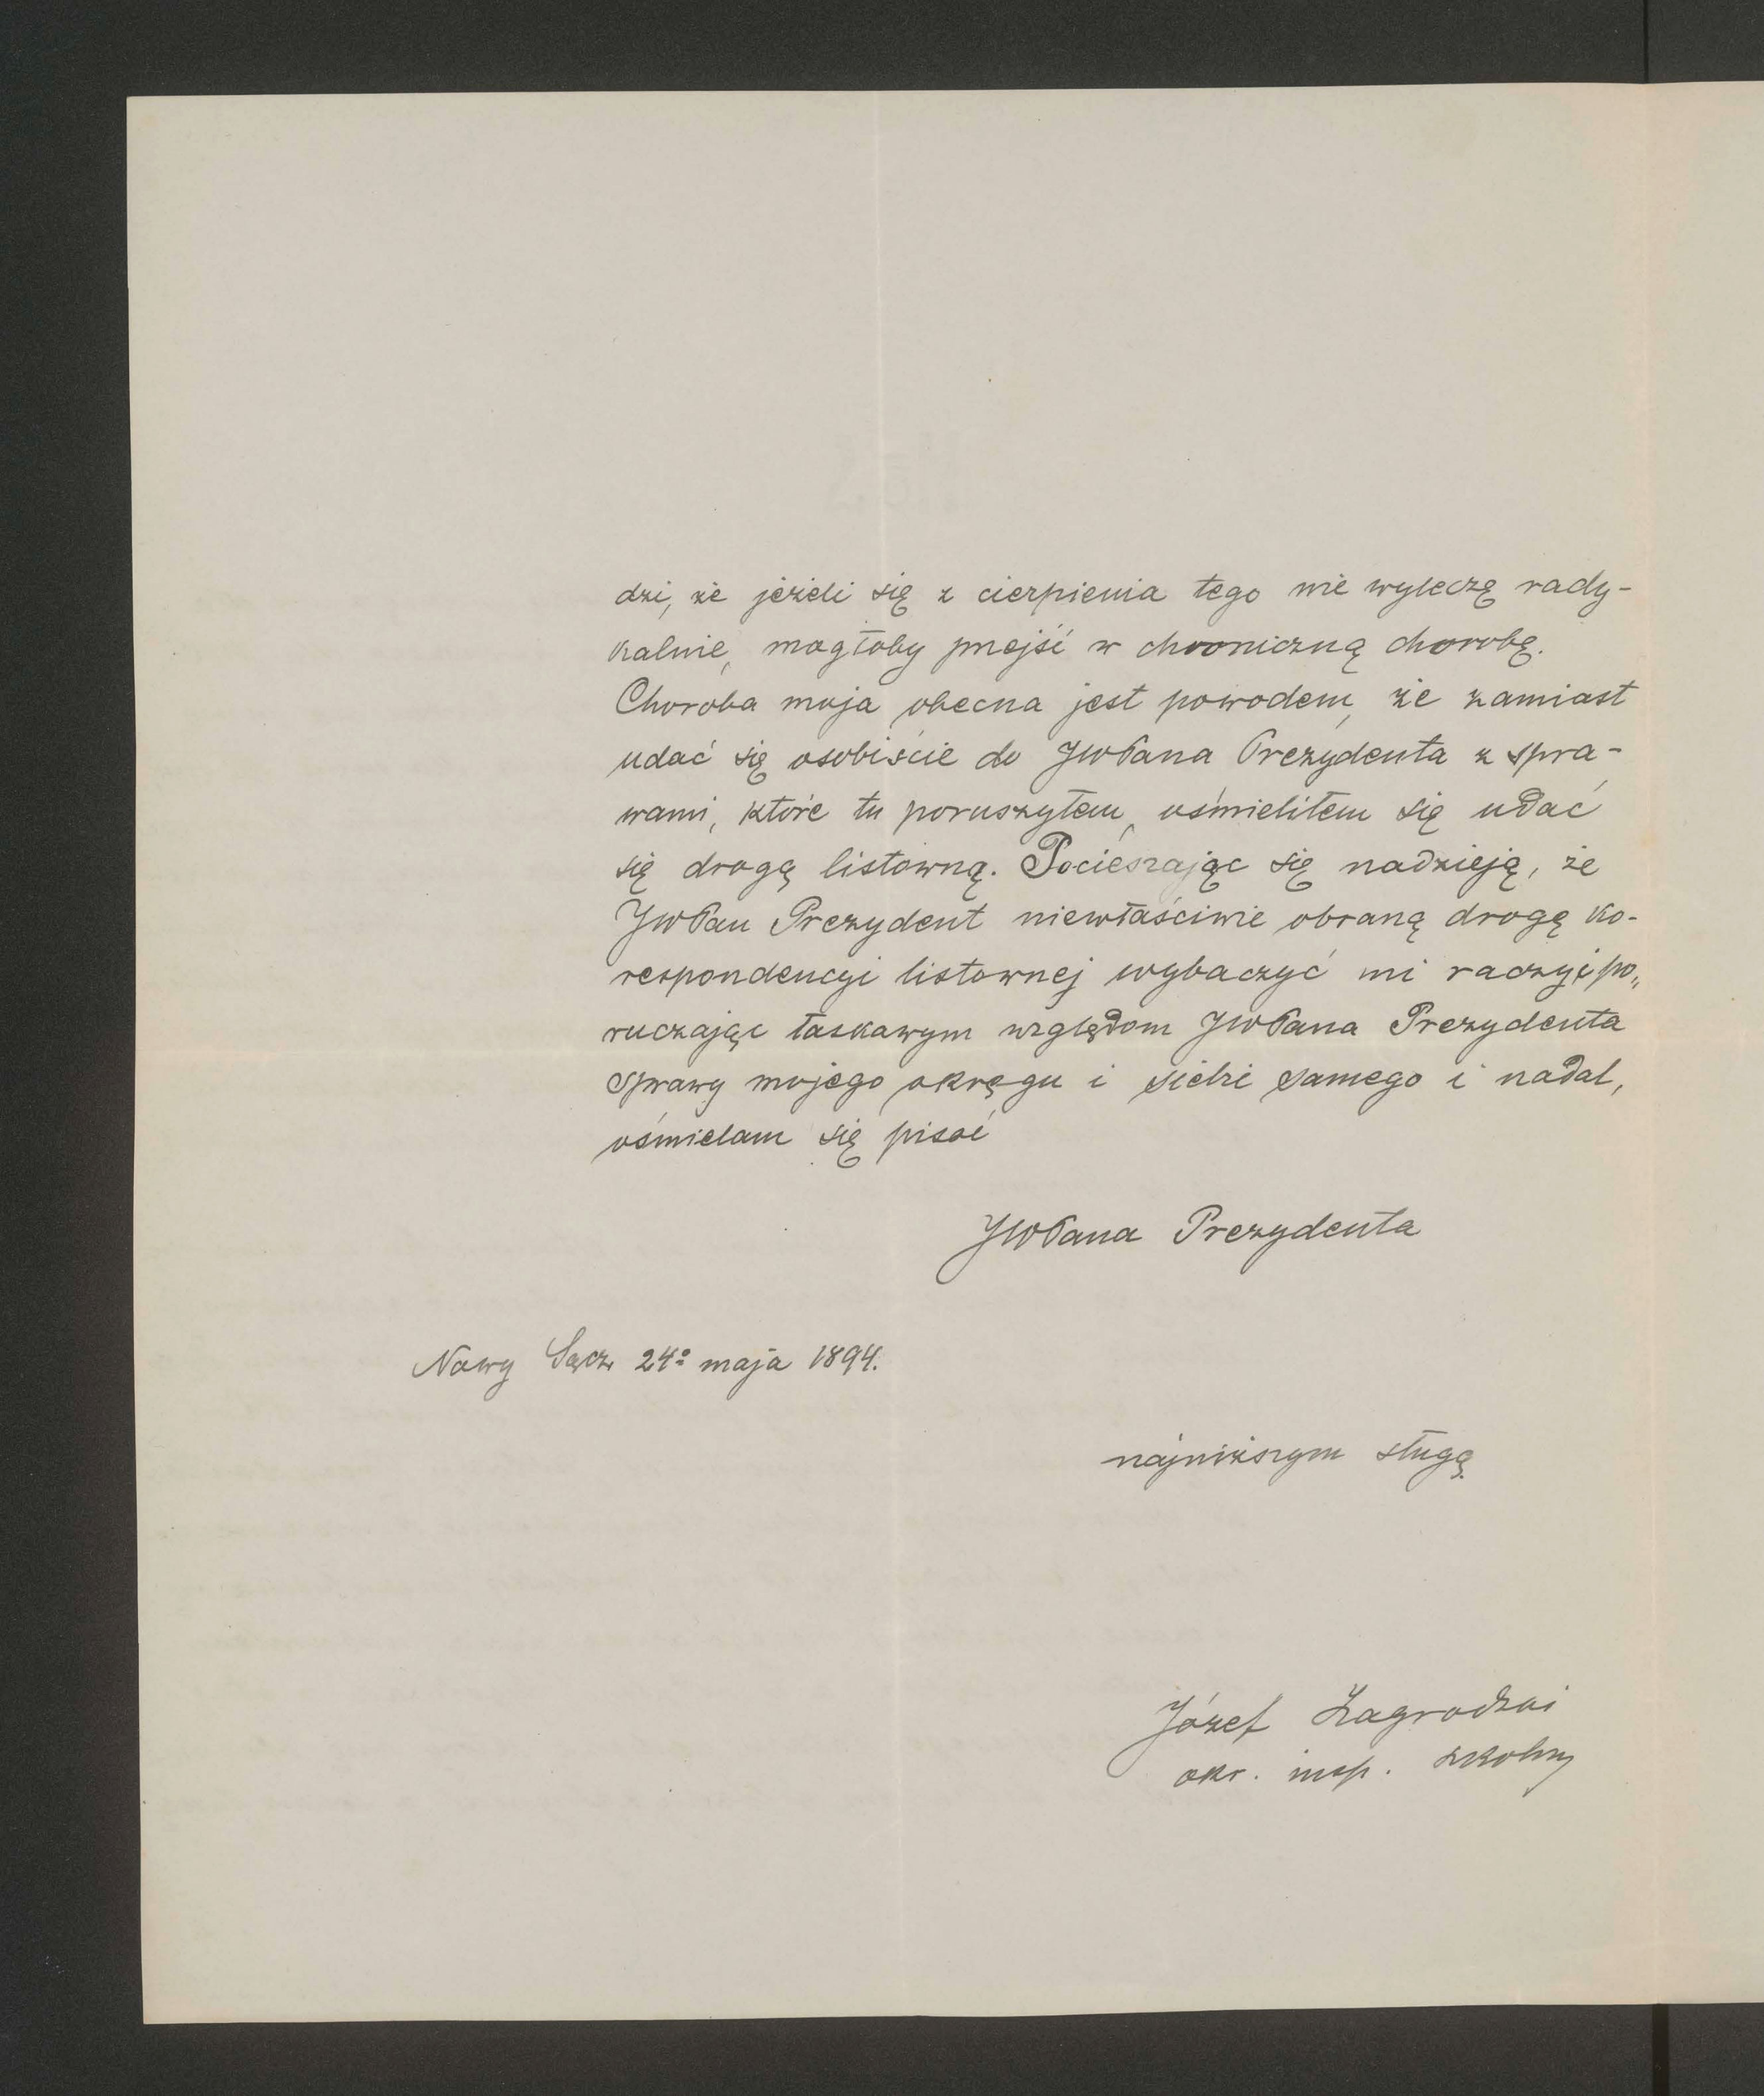 dzi, że jeżeli się z cierpienia tego nie wyleczę rady-
kalnie, mogłoby przejść w chroniczną chorobę.
Choroba moja obecna jest powodem, że zamiast
udać się osobiście do JWPana Prezydenta z spra-
wami, które tu poruszyłem, ośmieliłem się udać
się drogą listowną. Pocieszając się nadzieją, że
JWPan Prezydent niewłaściwie obraną drogę ko-
respondencyi listownej wybaczyć mi raczy i po„
ruczając łaskawym względom JWPana Prezydenta
sprawy mojego okręgu i siebie samego i nadal,
ośmielam się pisać
JWPana Prezydenta
Nowy Sącz 24º maja 1894.
najniższym sługą.
Józef Zagrodzki
okr. insp. szkolny